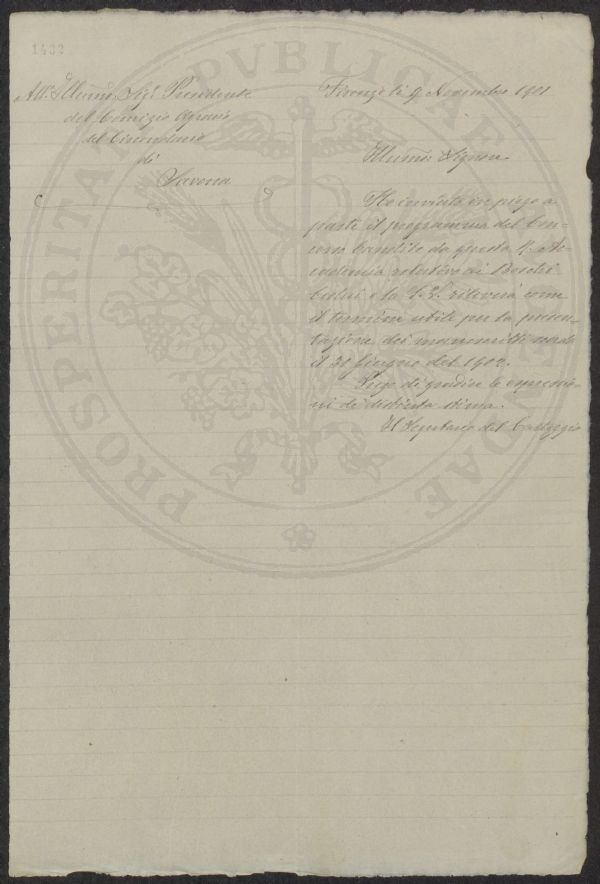 1432
All'Illmo Sigr Presidente
del Comizio Agrario
del Circondario
di
Savona
Firenze li 9 Novembre 1901
Illmo Signore
Ho inviato in piego a
parte il programma del Con-
corso bandito da questa R. Ac-
cademia relativo ai Boschi
cedui e la S. V. rileverà come
il termine utile per la presen-
tazione dei manoscritti scada
il 30 Giugno del 1902.
Prego di gradire le espressio-
ni di distinta stima.
Il Segretario del Carteggio
PROSPERITATI PVBLICAE AVGENDAE